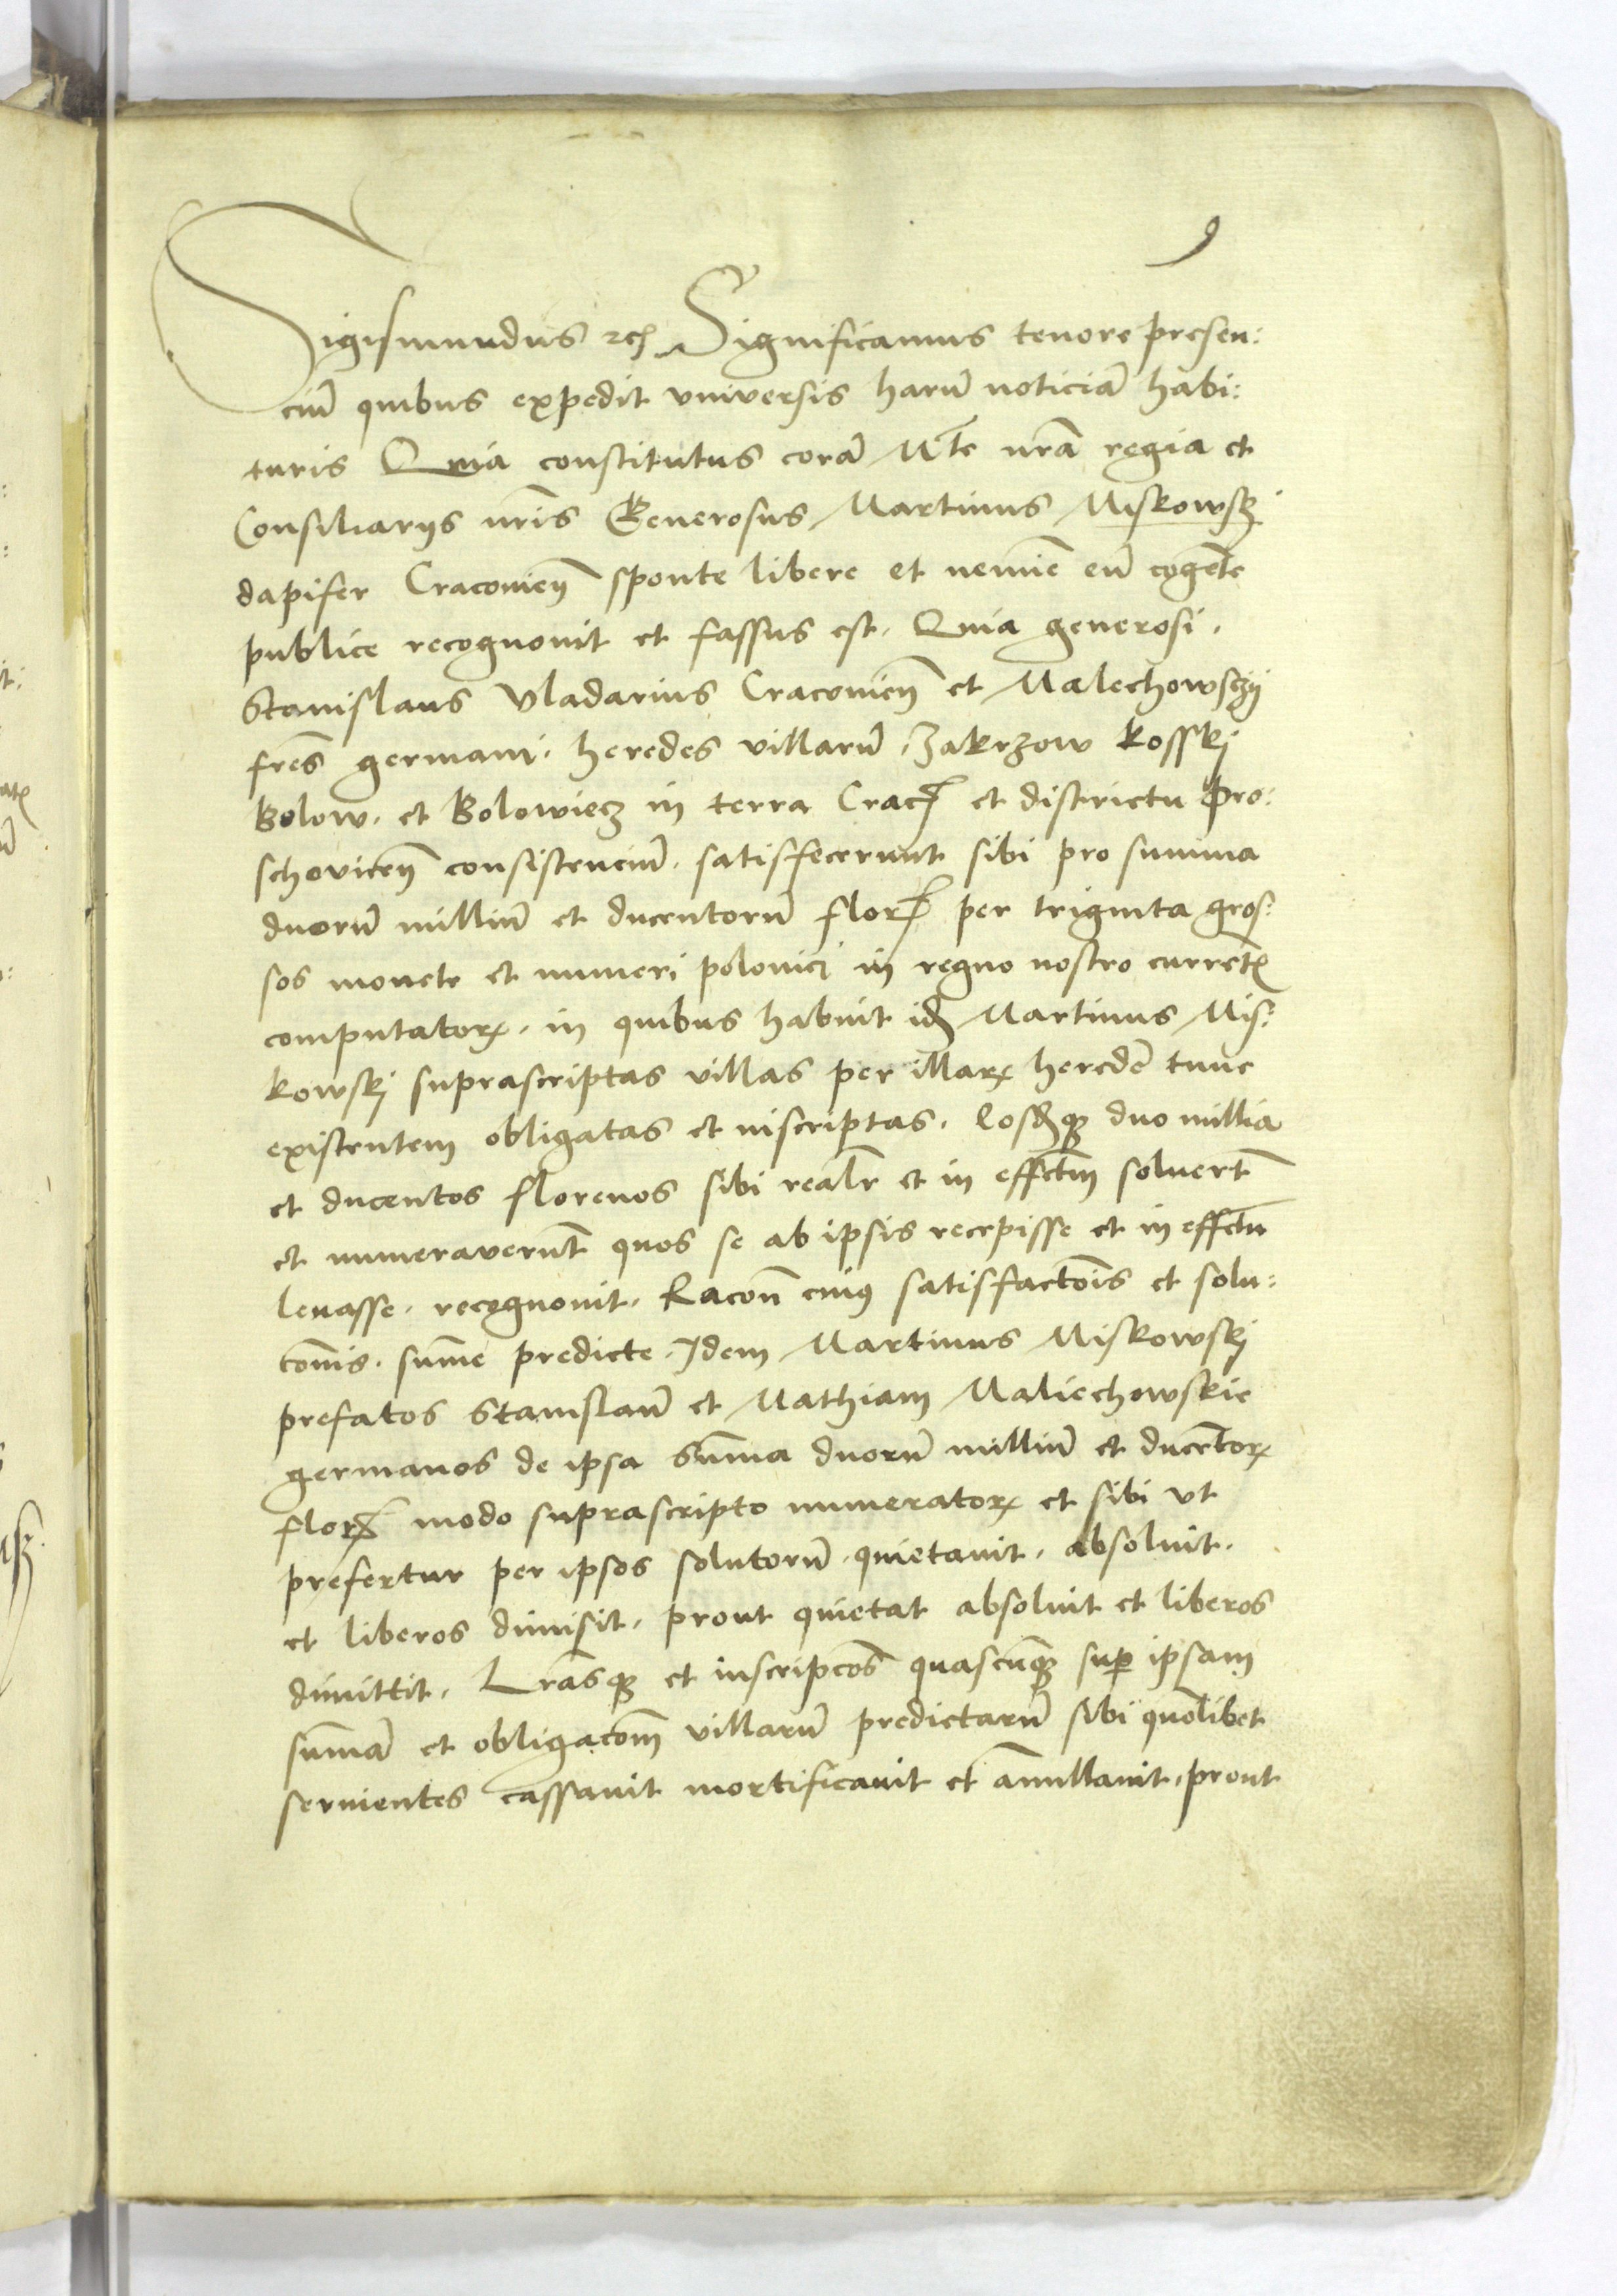 9
Sigismundus rc̃ Significamus tenore presen:
ciũ quibus expedit vniversis harũ noticiã habi:
turis Quia constitutus corã Mte nrã regia et
Consiliarijs nris Generosus Martinus Miskowsk
dapifer Cracovieñ sponte libere et nemine eũ cogẽte
publice recognovit et fassus est. Quia generosi.
Stanislaus Vladarius Cracovieñ et Malechowsczij
frẽs germani. heredes villarũ Zakrzow Kosski
Bolow. et Bolowiecz in terra Crac̃ et districtu Pro:
schoviceñ consistenciũ. satisfecerunt sibi pro summa
duorũ milliũ et ducentorũ flor̃ per triginta gros:
sos monete et numeri polonici in regno nostro currẽt
computatorꝝ. in quibus habuit idẽ Martinus Mis:
kowskj suprascriptas villas per illarꝝ heredẽ tunc
existentem obligatas et inscriptas. Eosdẽq́ue duo millia
et ducentos florenos sibi realr̃ et in effctm̃ soluerũt
et numeraverũt quos se ab ipsis recepisse et in effctu
levasse. recognovit. Racoñ cuiꝰ satisfactõis et solu:
tõnis. sum̃e predicte. Idem Martinus Miskowskj
prefatos Stanislaũ et Mathiam Maliechowskie
germanos de ipsa Sum̃a duorũ milliũ et ducẽtorꝝ
flor̃ modo suprascripto numeratorꝝ et sibi vt
prefertur per ipsos solutorũ. quietavit. absoluit.
et liberos dimisit. prout quietat absoluit et liberos
dimittit. Lrãsq́ue et inscripcões quascũq́ue sup̱ ipsam
sum̃ã et obligacõm villarũ predictarũ sibi quolibet
seruientes cassavit mortificauit et ãnullauit. prout